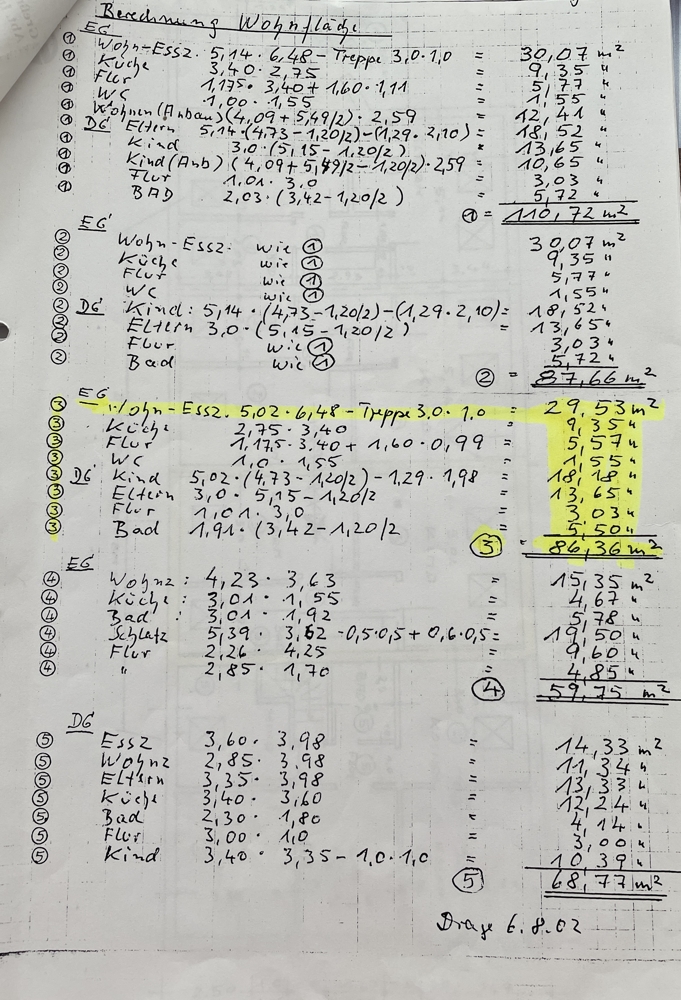 Berechnung Wohnfläche
EG
① Wohn-Essz. 5,14 · 6,48 - Treppe 3,0 · 1,0 = 30,07 m²
① Küche 3,40 · 2,75 = 9,35 "
① Flur 1,175 · 3,40 + 1,60 · 1,11 = 5,77 "
① WC 1,00 · 1,55 = 1,55 "
① Wohnen (Anbau) (4,09 + 5,49/2) · 2,59 = 12,41 "
① DG Eltern 5,14 (4,73 - 1,20/2) - (1,29 · 2,10) = 18,52 "
① Kind 3,0 · (5,15 - 1,20/2) " 13,65 "
① Kind (Anb) (4,09 + 5,49/2 - 1,20/2) · 2,59 = 10,65 "
① Flur 1,01 · 3,0 = 3,03 "
① BAD 2,03 · (3,42 - 1,20/2) = 5,72 "
① = 110,72 m²
EG
② Wohn-Essz. wie ① 30,07 m²
② Küche wie ① 9,35 "
② Flur wie ① 5,77 "
② WC wie ① 1,55 "
② DG Kind : 5,14 · (4,73 - 1,20/2) - (1,29 · 2,10) = 18,52 "
② Eltern 3,0 · (5,15 - 1,20/2) = 13,65 "
② Flur wie ① 3,03 "
② Bad wie ① 5,72 "
② = 87,66 m²
EG
③ Wohn-Essz. 5,02 · 6,48 - Treppe 3,0 · 1,0 = 29,53 m²
③ Küche 2,75 · 3,40 = 9,35 "
③ Flur 1,175 · 3,40 + 1,60 · 0,99 = 5,57 "
③ WC 1,0 · 1,55 = 1,55 "
③ DG Kind 5,02 · (4,73 - 1,20/2) - 1,29 · 1,98 = 18,18 "
③ Eltern 3,0 · 5,15 - 1,20/2 = 13,65 "
③ Flur 1,01 · 3,0 = 3,03 "
③ Bad 1,91 · (3,42 - 1,20/2 = 5,50 "
③ = 86,36 m²
EG
④ Wohnz : 4,23 · 3,63 = 15,35 m²
④ Küche : 3,01 · 1,55 = 4,67 "
④ Bad : 3,01 · 1,92 = 5,78 "
④ Schlafz 5,39 · 3,62 - 0,5 · 0,5 + 0,6 · 0,5 = 19,50 "
④ Flur 2,26 · 4,25 = 9,60 "
④ " 2,85 · 1,70 = 4,85 "
④ 59,75 m²
DG
⑤ Essz 3,60 · 3,98 = 14,33 m²
⑤ Wohnz 2,85 · 3,98 = 11,34 "
⑤ Eltern 3,35 · 3,98 = 13,33 "
⑤ Küche 3,40 · 3,60 = 12,24 "
⑤ Bad 2,30 · 1,80 = 4,14 "
⑤ Flur 3,00 · 1,0 = 3,00 "
⑤ Kind 3,40 · 3,35 - 1,0 · 1,0 = 10,39 "
⑤ 68,77 m²
Drage 6.8.02